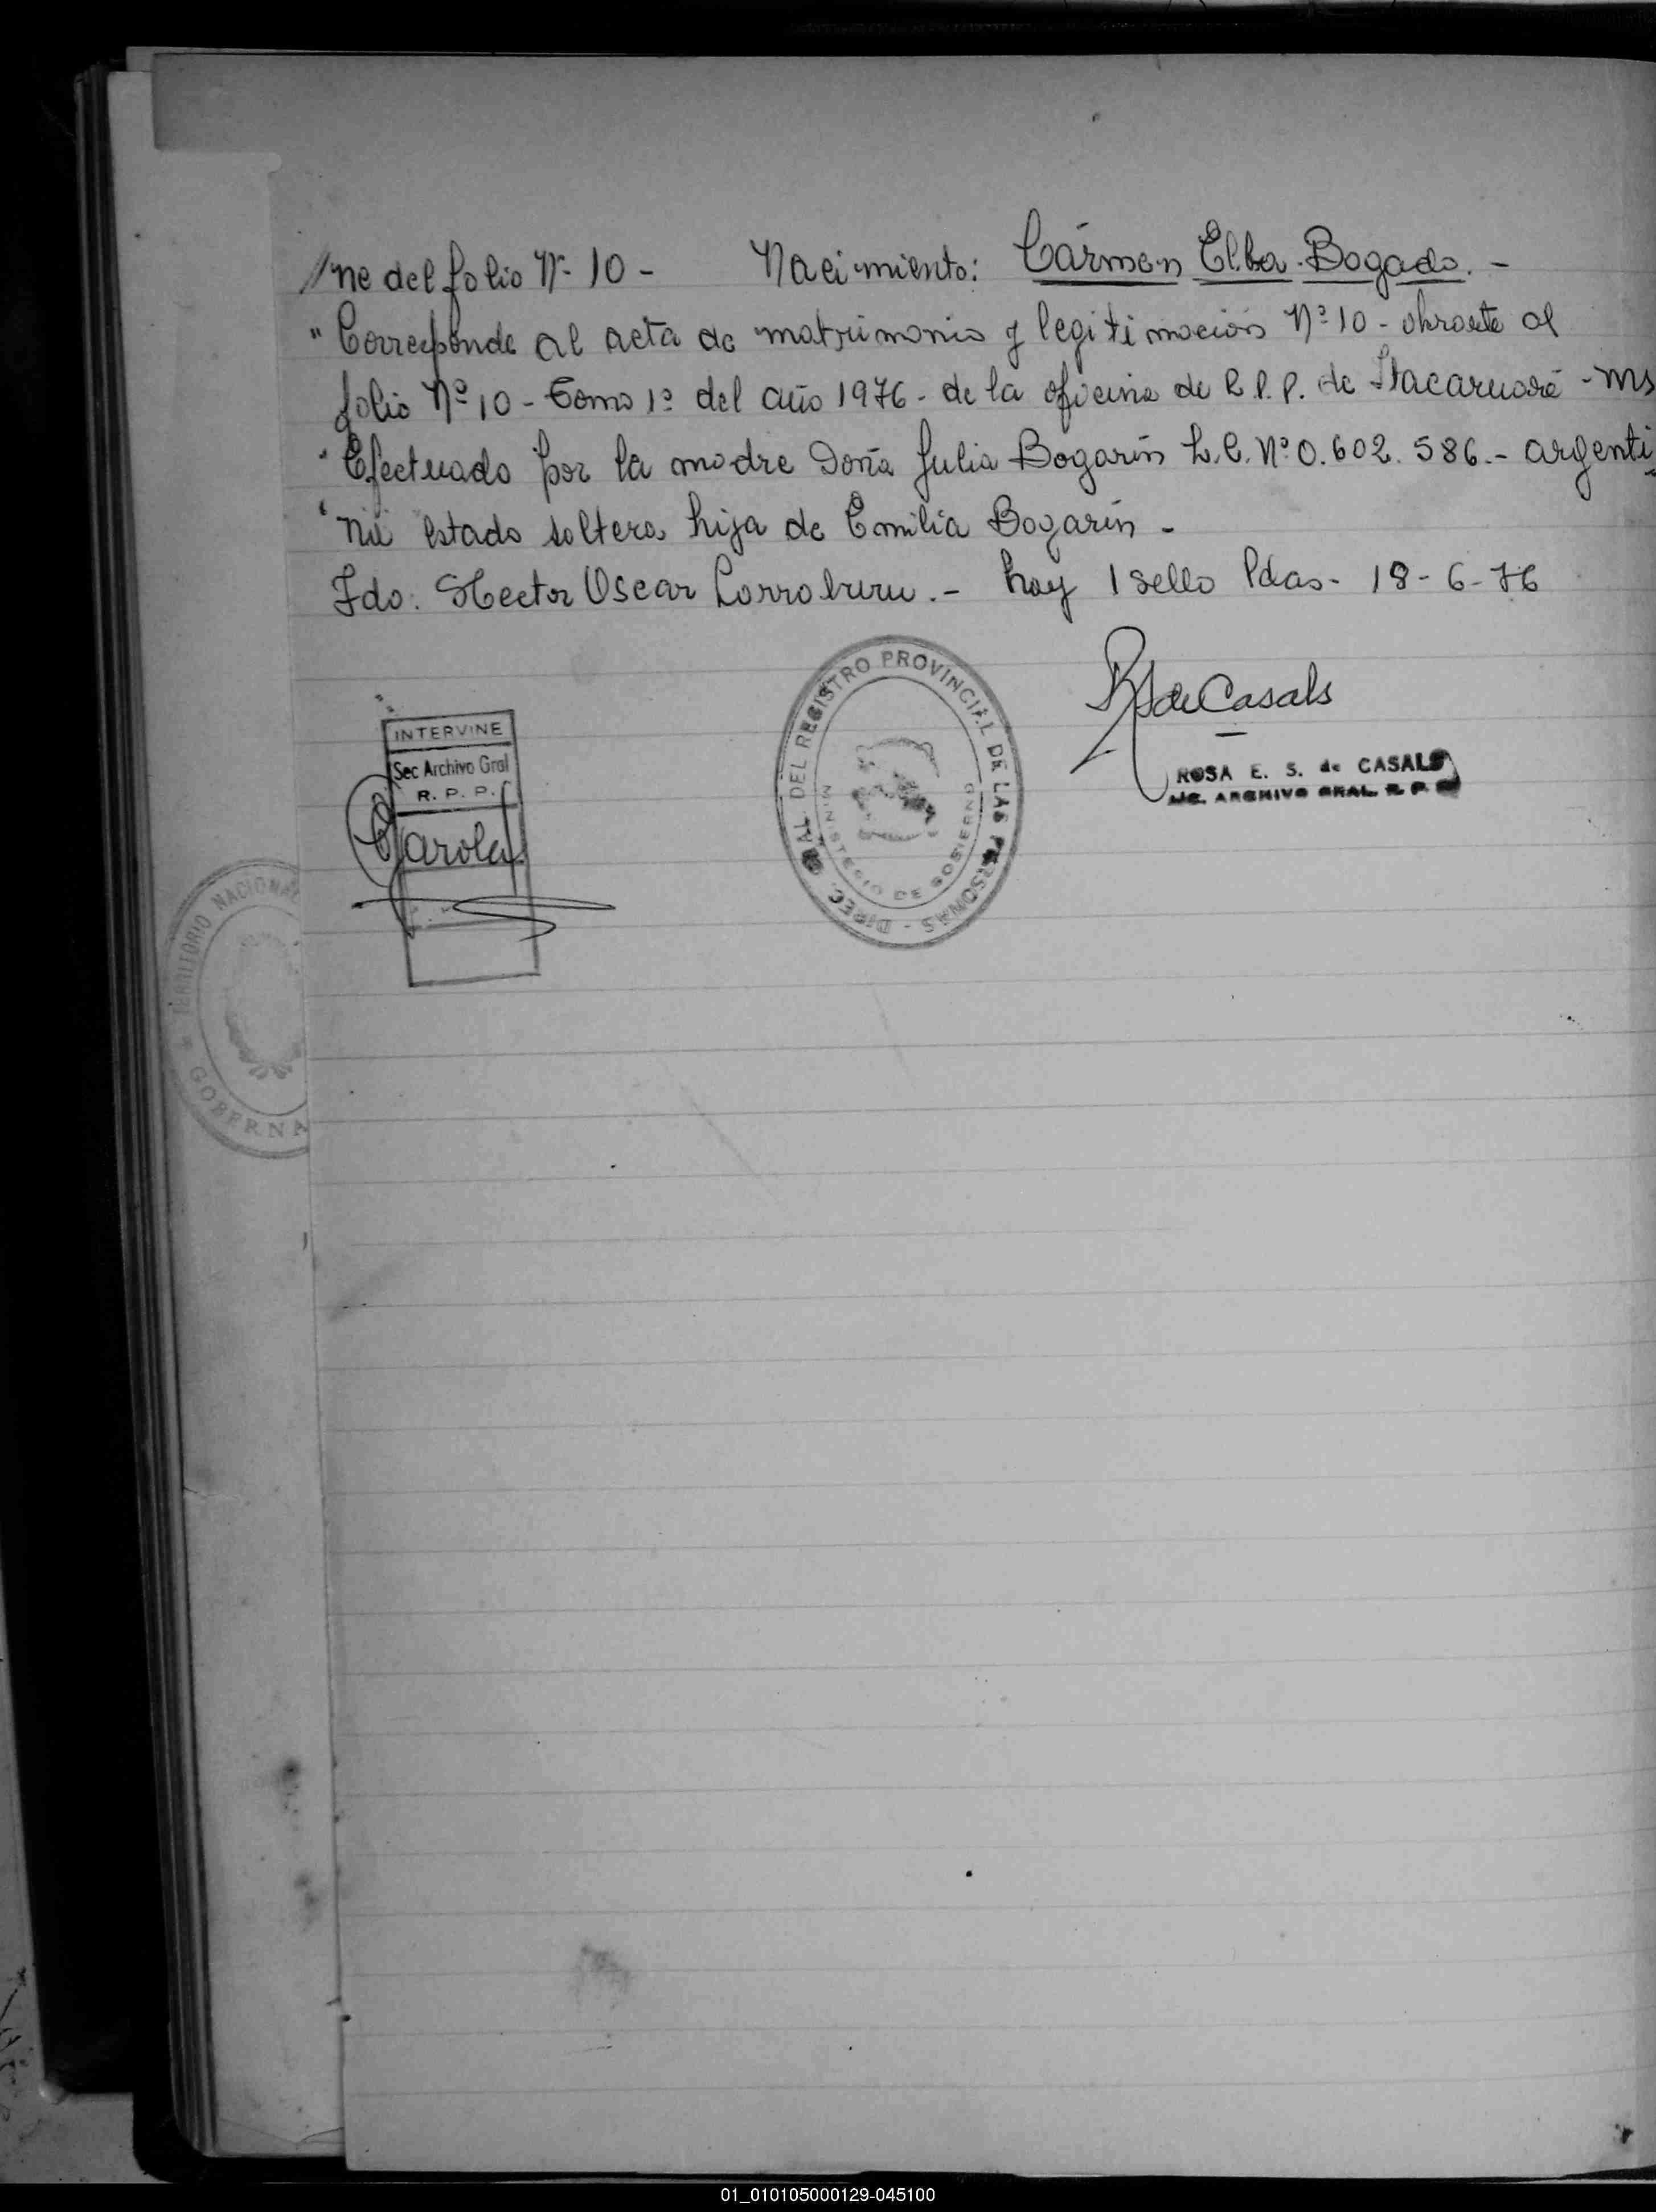 //ne del folio Nº 10 - Nacimiento: Cármen Elba Bogado. -
"Corresponde al acta de matrimonio y legitimación Nº 10 - obrante al
folio Nº 10 - Tomo 1º del año 1976 - de la oficina de R.P.P. de Itacaruaré - Ms
"Efectuado por la madre Doña Julia Bogarín L.C. Nº 0.602.586.- argenti
"na estado soltera hija de Emilia Bogarín -
Fdo. Hector Oscar Larraburu .- hay 1 sello Pdas - 18-6-76
INTERVINE
Sec Archivo Gral
R. P. P.
DIREC. GRAL. DEL REGISTRO PROVINCIAL DE LAS PERSONAS -
MINISTERIO DE GOBIERNO
R S de Casals
ROSA E. S. de CASALS
ARCHIVO GRAL. R. P. P.
TERRITORIO NACIONAL
GOBERNA
01_010105000129-045100